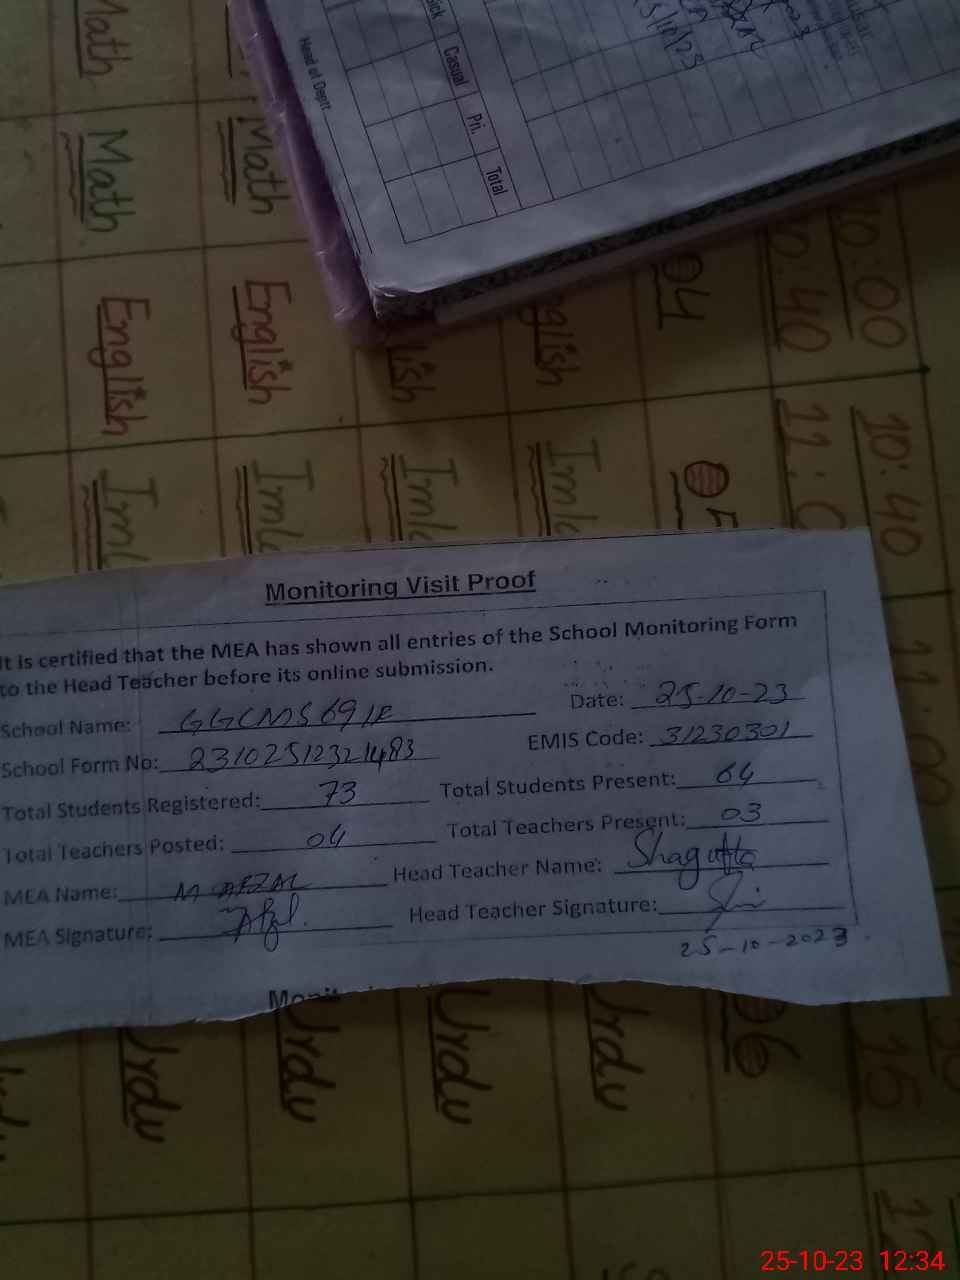 Math
Math
Math
Math
English
English
English
English
Head of Deptt
Sick
Casual
Pri.
Total
04
10:00
10:40
05
10:40
11:00
Monitoring Visit Proof
It is certified that the MEA has shown all entries of the School Monitoring Form
to the Head Teacher before its online submission.
School Name: GGCMS 69 1R Date: 25-10-23
School Form No: 23102512321483 EMIS Code: 31230301
Total Students Registered: 73 Total Students Present: 64
Total Teachers Posted: 04 Total Teachers Present: 03
MEA Name: M AFZAL Head Teacher Name: Shagufta
MEA Signature: Head Teacher Signature:
25-10-2023
Urdu
Urdu
Urdu
Urdu
06
25-10-23 12:34